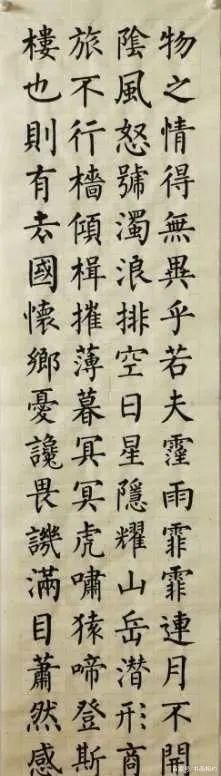 物之情得無異乎若夫霪雨霏霏連月不開
陰風怒號濁浪排空日星隱耀山岳潛形商
旅不行檣傾楫摧薄暮冥冥虎嘯猿啼登斯
樓也則有去國懷鄉憂讒畏譏滿目蕭然感